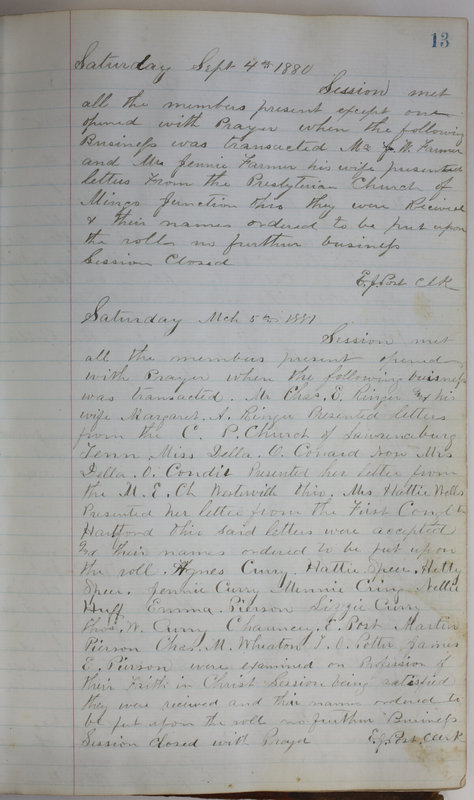 13
Saturday Sept 4th 1880
Session met
all the members present except one
opened with Prayer when the following
Business was transacted Mr W. Farmer
and Mrs Jennie Farmer his wife presented
letters From the Presbyterian Church of
Mingo Junction Ohio they were Recieved
& their names ordered to be put upon
the rolls no further business
Session Closed
E. J. Post Clk
Saturday Mch 5th 1881
Session met
all the members present opened
with Prayer when the following buisness
was transacted. Mr Chas. E. Ringer and his
wife Margaret. A. Ringer Presented letters
from the C. P. Church of Lawrenceburg
Tenn Miss Della. O. Conaid now Mrs
Della. O. Condit Presented her letter from
the M. E. Ch Ohio. Mrs. Hettie Wells
Presented her letter from the First Cong Ch
Hartford Ohio said letters were accepted
and their names ordered to be put upon
the roll. Agnes Curry. Hattie Speer. Hetty
Speer. Jennie Curry Minnie Nellie
Huff Emma. Pierson Lizzie Curry
Thos. W. Curry Chauncy. E. Post Martin
Pierson Chas. M. Wheaton J. O. Potter James
E. Pierson were examined on Profession of
their Faith in Christ Session being satisfied
they were received and their names ordered to
be put upon the roll no further Business
Session closed with Prayer E. J. Post. Clerk